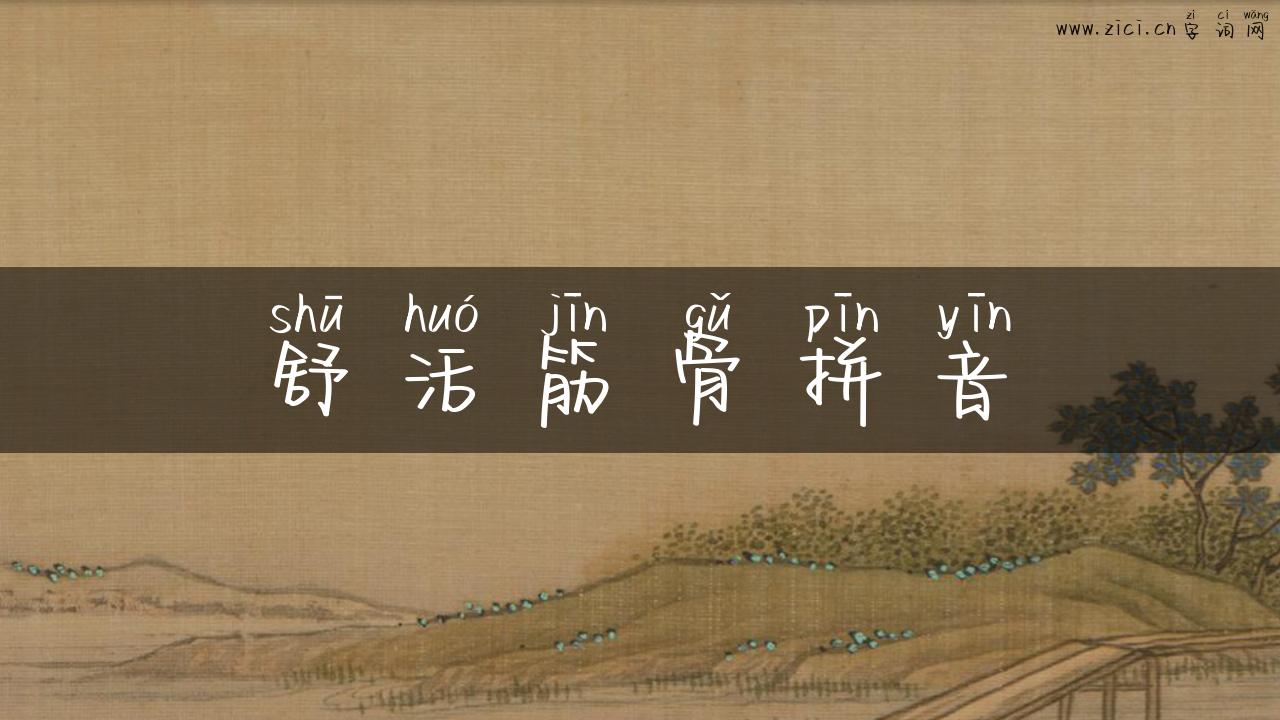 zì cí wǎng
www.zici.cn 字词网
shū huó jīn gǔ pīn yīn
舒活筋骨拼音